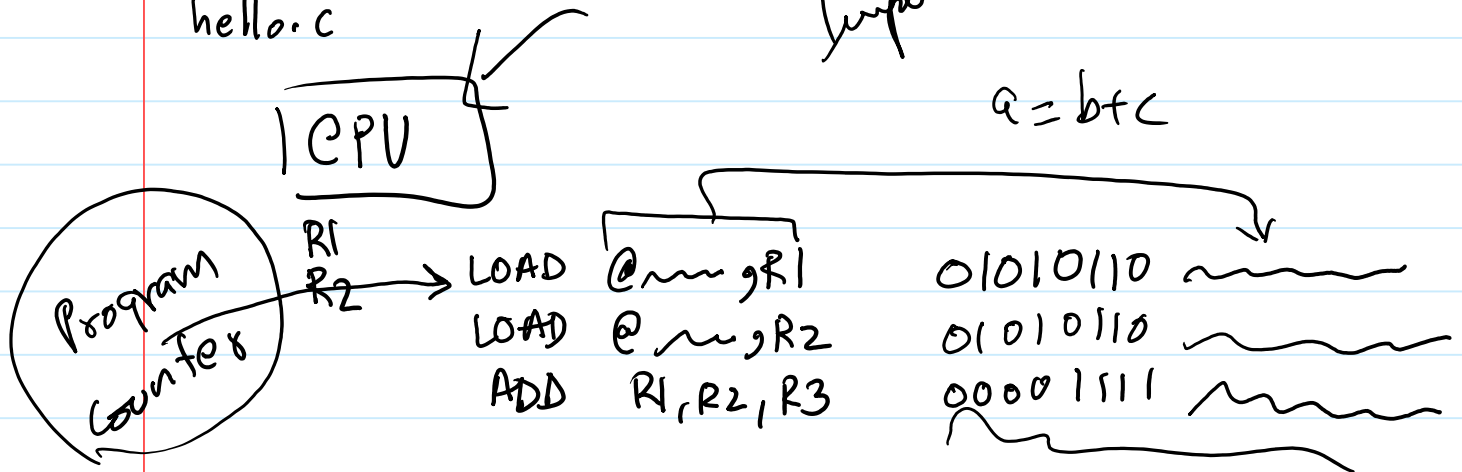 hello.c
a = b+c
CPU
R1
R2
Program
Counter
LOAD @ ,R1 01010110
LOAD @ ,R2 01010110
ADD R1,R2,R3 00001111